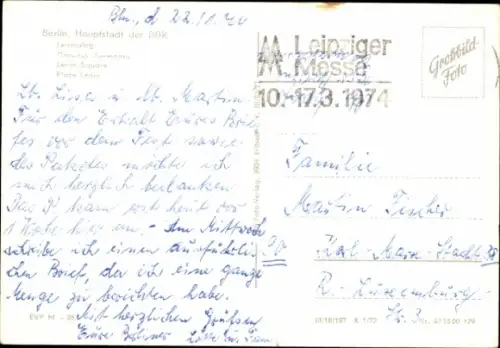 Bln., d. 22.1.74
Berlin, Hauptstadt der DDR
Leninplatz
Lenin Square
Place Lénine
Lb. Liesel u. lb. Martin
Für den Erhalt Eures Brie-
fes vor dem Fest sowie
des Paketes möchte ich
mich herzlich bedanken
Das P. kam erst heut vor
1 Woche hier an. – Am Mittwoch
schreibe ich einen ausführli-
chen Brief, da ich eine ganze
Menge zu berichten habe.
Mit herzlichen Grüßen
Eure Berliner
Leipziger
Messe
10.-17.3.1974
Großbild-
Foto
Familie
Martin Fischer
90 Karl-Marx-Stadt
R.-Luxemburg-
Str.